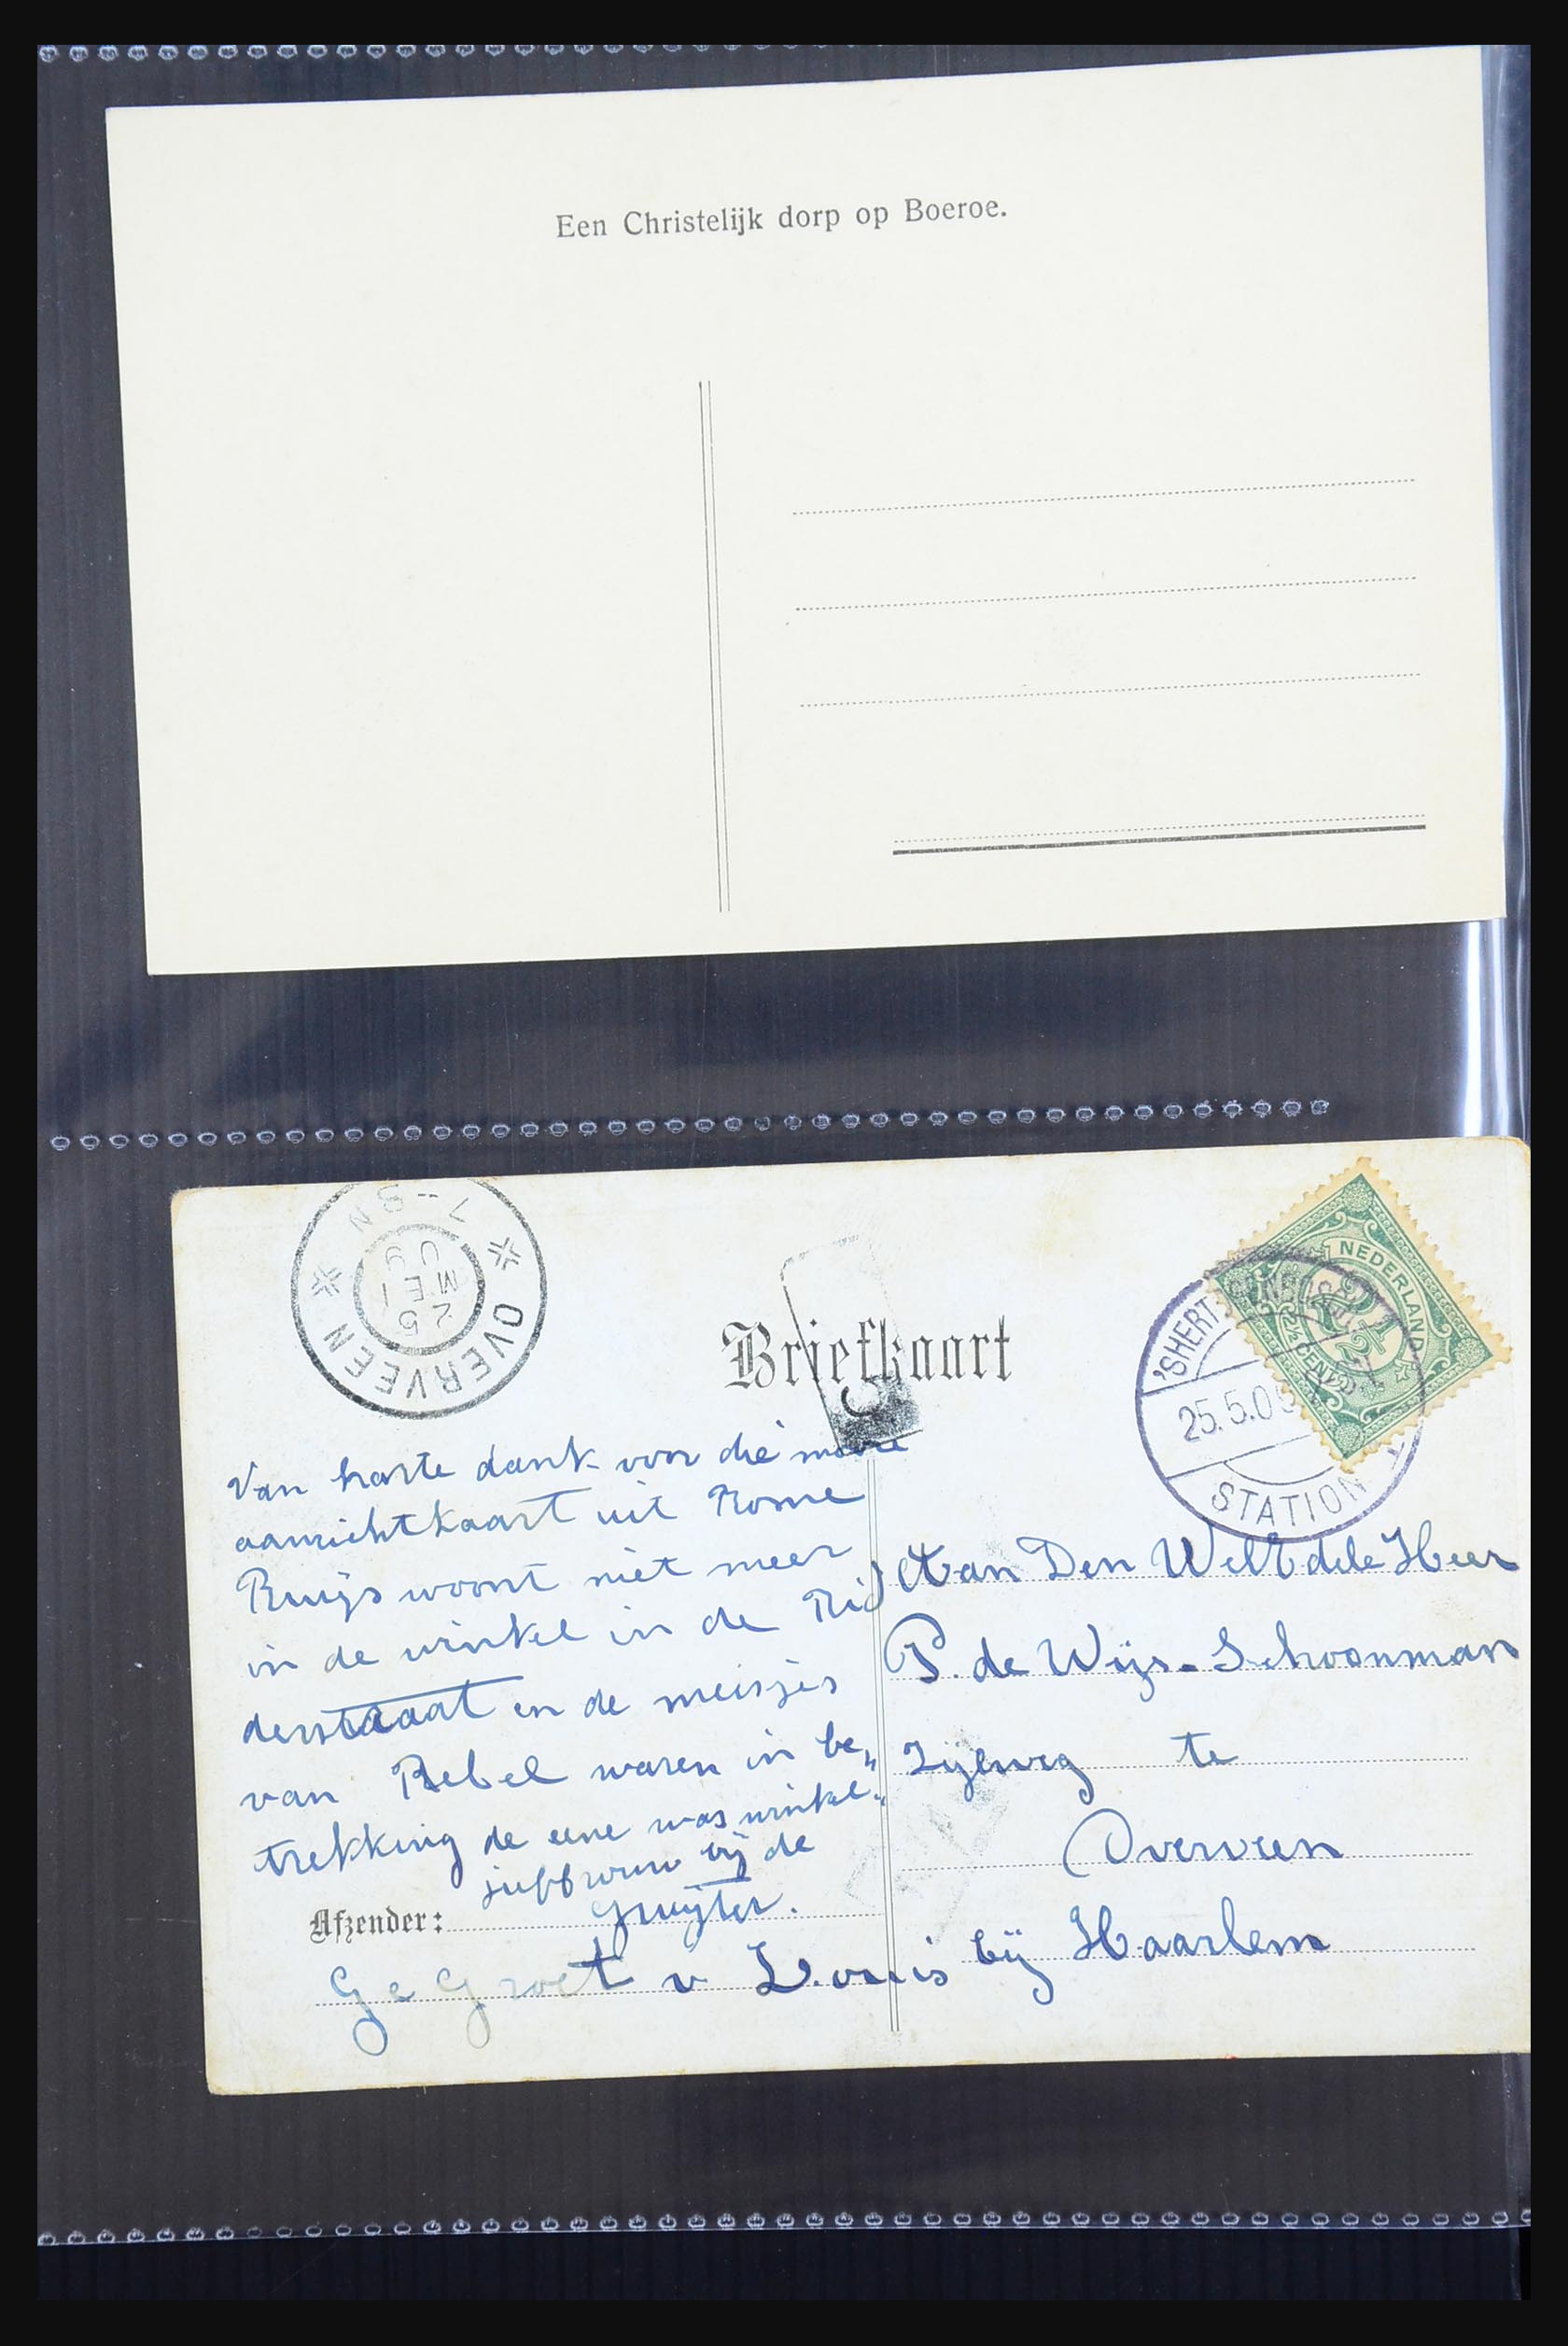 Een Christelijk dorp op Boeroe.
OVERVEEN
25
MEI
09
7-8N
Briefkaart
NEDERLAND
2½
2½ CENT
'SHERT
25.5.0
STATION
Van harte dank voor die mooie
aanzichtkaart uit Rome
Ruijs woont niet meer
in de winkel in de Rid
derstraat en de meisjes
van Rebel waren in be„
trekking de eene was winkel„
juffrouw bij de
Gruijter.
Afzender:
Ge Groet v Louis
Aan Den WelEdele Heer
P. de Wijs-Schoonman
Zijlweg te
Overveen
bij Haarlem